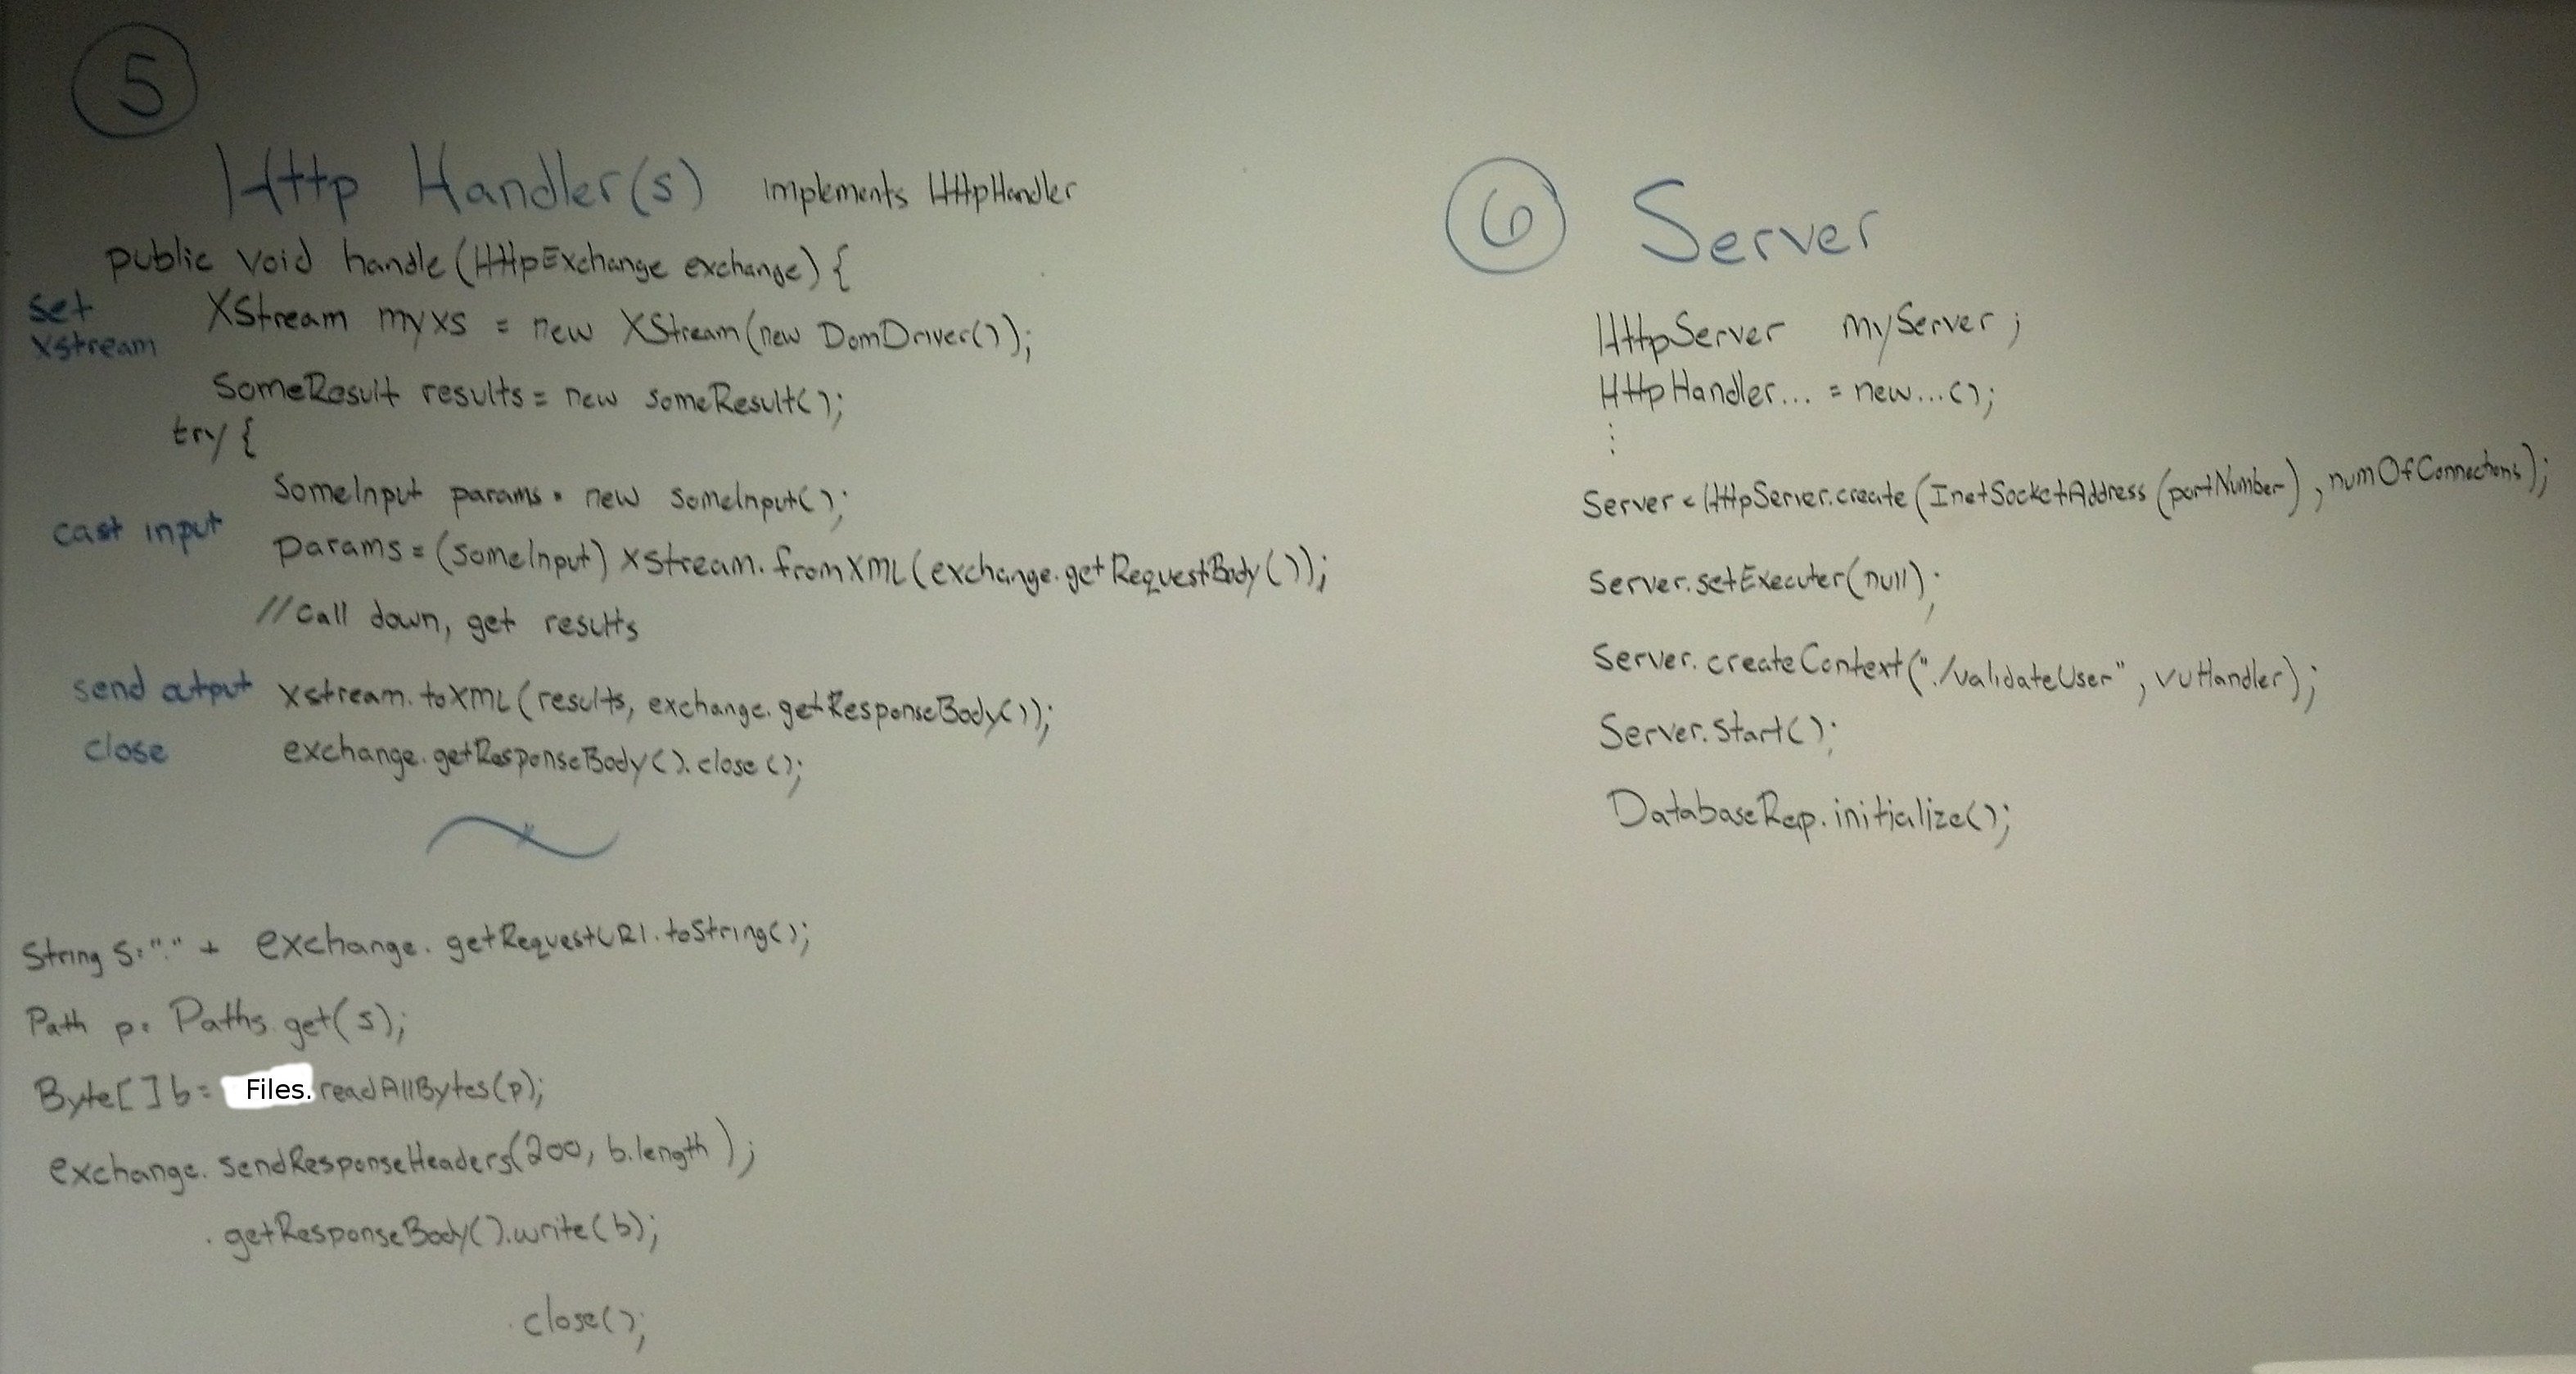 5
Http Handler(s) implements HttpHandler
public void handle(HttpExchange exchange){
set
xstream
XStream myxs = new XStream(new DomDriver());
SomeResult results = new someResult();
try {
SomeInput params = new someInput();
cast input
params = (someInput) xstream.fromXML(exchange.getRequestBody());
//call down, get results
send output xstream.toXML(results, exchange.getResponseBody());
close exchange.getResponseBody().close();
String s = "." + exchange.getRequestURI.toString();
Path p = Paths.get(s);
Byte[] b = Files.readAllBytes(p);
exchange.sendResponseHeaders(200, b.length);
.getResponseBody().write(b);
.close();
6 Server
HttpServer myServer;
HttpHandler... = new...();
⋮
Server = HttpServer.create(InetSocketAddress(portNumber), numOfConnections);
Server.setExecuter(null);
Server.createContext("./validateUser", vuHandler);
Server.start();
DatabaseRep.initialize();